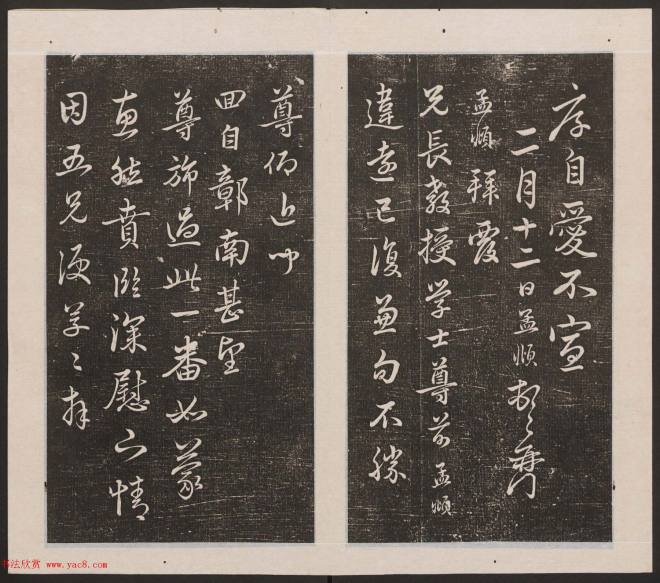 序自愛不宣
二月十二日孟頫頓首
孟頫拜覆
兄長教授學士尊前孟頫
違遠已復兼旬不勝
尊仰近聞
回自鄣南甚望
尊旆過此一番如蒙
惠然賁臨深慰下情
因五兄便草草拜
书法欣赏 www.yac8.com